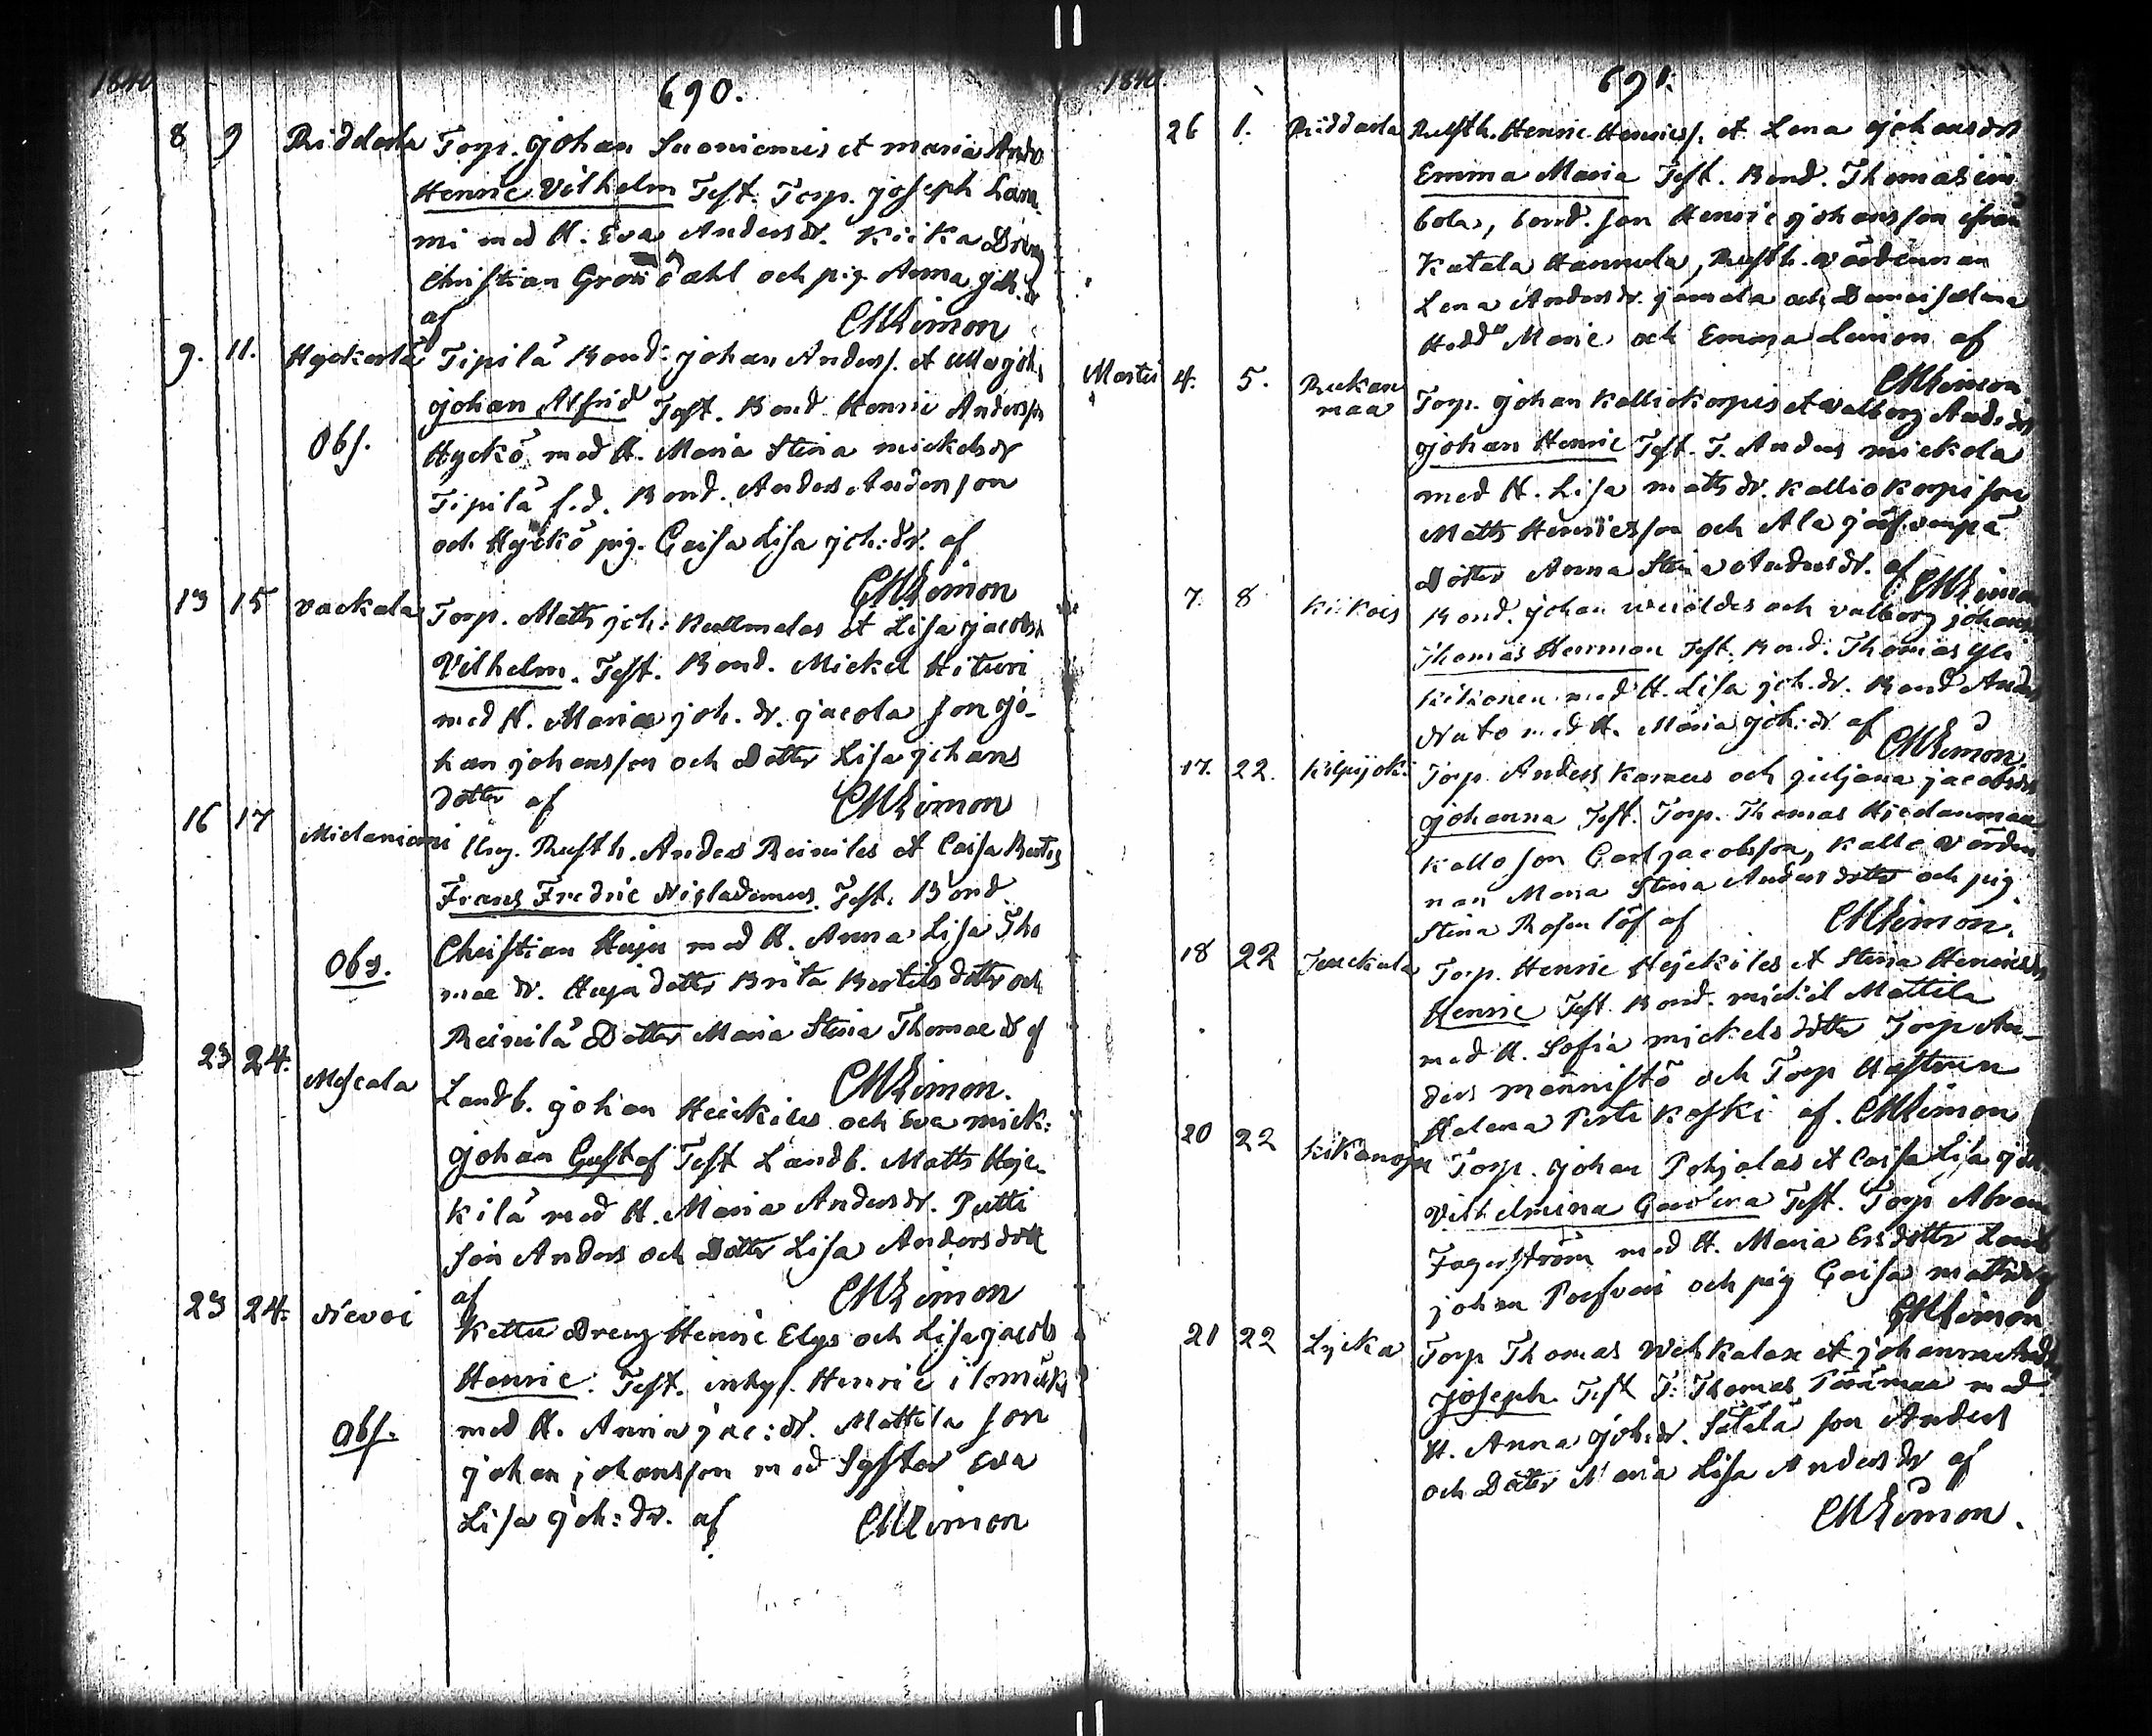 1840
690.
8 9 Riddarla Torp. Johan Suoniemis et Maria Andr
Henric Vilhelm Test. Torp. Joseph Lam
mi med H. Eva Andersdr. Kiika Dreng
Christian Grön dahl och pig. Anna Joh.dr
af CMLimon
9. 11. Hyckerlä Tipilä Bond. Johan Anderss. et Ulla Joh.
Johan Alfrid Test. Bond. Henric Andersson
Obs. Hyckö med H. Maria Stina Mickelsdr
Tipilä f.d. Bond. Anders Andersson
och Hyckö pig. Caisa Lisa Joh:dr. af
CMLimon
13 15 Vackala Torp. Matts Joh: Kullmalas et Lisa Jacobs
Vilhelm. Test. Bond. Mickel Hituri
med H. Maria Joh. dr. Jacola Son Jo-
han Johansson och Dotter Lisa Johans
dotter af CMLimon
16 17 Mielaniemi Ung. Rusth. Anders Reiniles et Caisa
Frans Fredric Test. Bond.
Christian Huja med H. Anna Lisa Tho
Obs. mae dr. Huja dotter Brita Bertils dotter och
Reinilä Dotter Maria Stina Thomae dr af
CMLimon.
23 24. Mycala Landb. Johan Heickiles och Eva Mick:
Johan Gustaf Test Landb. Matts Heic-
kilä med H. Maria Andersdr. Putti
Son Anders och Dotter Lisa Andersdott
af CMLimon
23 24. Nevoi Kettu Dreng Henric Elgs och Lisa Jacobs
Henric. Test. inhys. Henric
Obs. med H. Anna Jac:dr. Mattila Son
Johan Johansson med Syster Eva
Lisa Joh:dr. af CMLimon
1840
691.
26 1. Riddarla Rusth. Henric Henricss. et Lena Johansdr
Emma Maria Test. Bond. Thomas
bola, bond. Son Henric Johansson ifrån
Katala Hannula, Rusth. värdinnan
Lena Andersdr. Jamala och Demoisellerna
Hedd. Marie och Emma Limon af
CMLimon
Martii 4. 5. Ruokan
maa Torp. Johan Kalliokorpis et Valborg Andsdr
Johan Henric Test. T. Anders Mickola
med H. Lisa Mattsdr. Kalliokorpi Son
Matts Henricsson och Ala
Dotter Anna Stina Andersdr. af
CMLimon
7. 8 Kiikois Bond. Johan och Valborg Johans
Thomas Herman Test. Bond. Thomas Yli
Kikonen med H. Lisa Joh.dr. Bond Anders
Nuto med H. Maria Joh:dr af
CMLimon
17. 22. Kilpijoki Torp. Anders Karneus och Juljana Jacobsdr
Johanna Test. Torp. Thomas Hiedanmaa
Kallo Son Carl Jacobsson, Kallo värdin
nan Maria Stina Andersdotter och pig
Stina Rosenlöf af CMLimon.
18 22 Jauckala Torp. Henric Hejckiles et Stina Henricsdr
Henric Test. Bond. Mickel Mattila
med H. Sofia Mickelsdotter Torp An-
ders Männistö och Torp Hustrun
Helena Pertikoski af. CMLimon
20 22 Kikanoja Torp. Johan Pohjalas et Caisa Lisa Joh.
Vilhelmina Carolina Test. Torp Abram
Fagerström med H. Maria Ersdotter Landb
Johan och pig Caisa Mattsdotter
CMLimon
21 22 Lycka Torp Thomas Wehkalax et Johanna Anders
Joseph Test T. Thomas Pärämaa med
H. Anna Joh:dr. Sälälä Son Anders
och Dotter Maria Lisa Andersdr af
CMLimon.